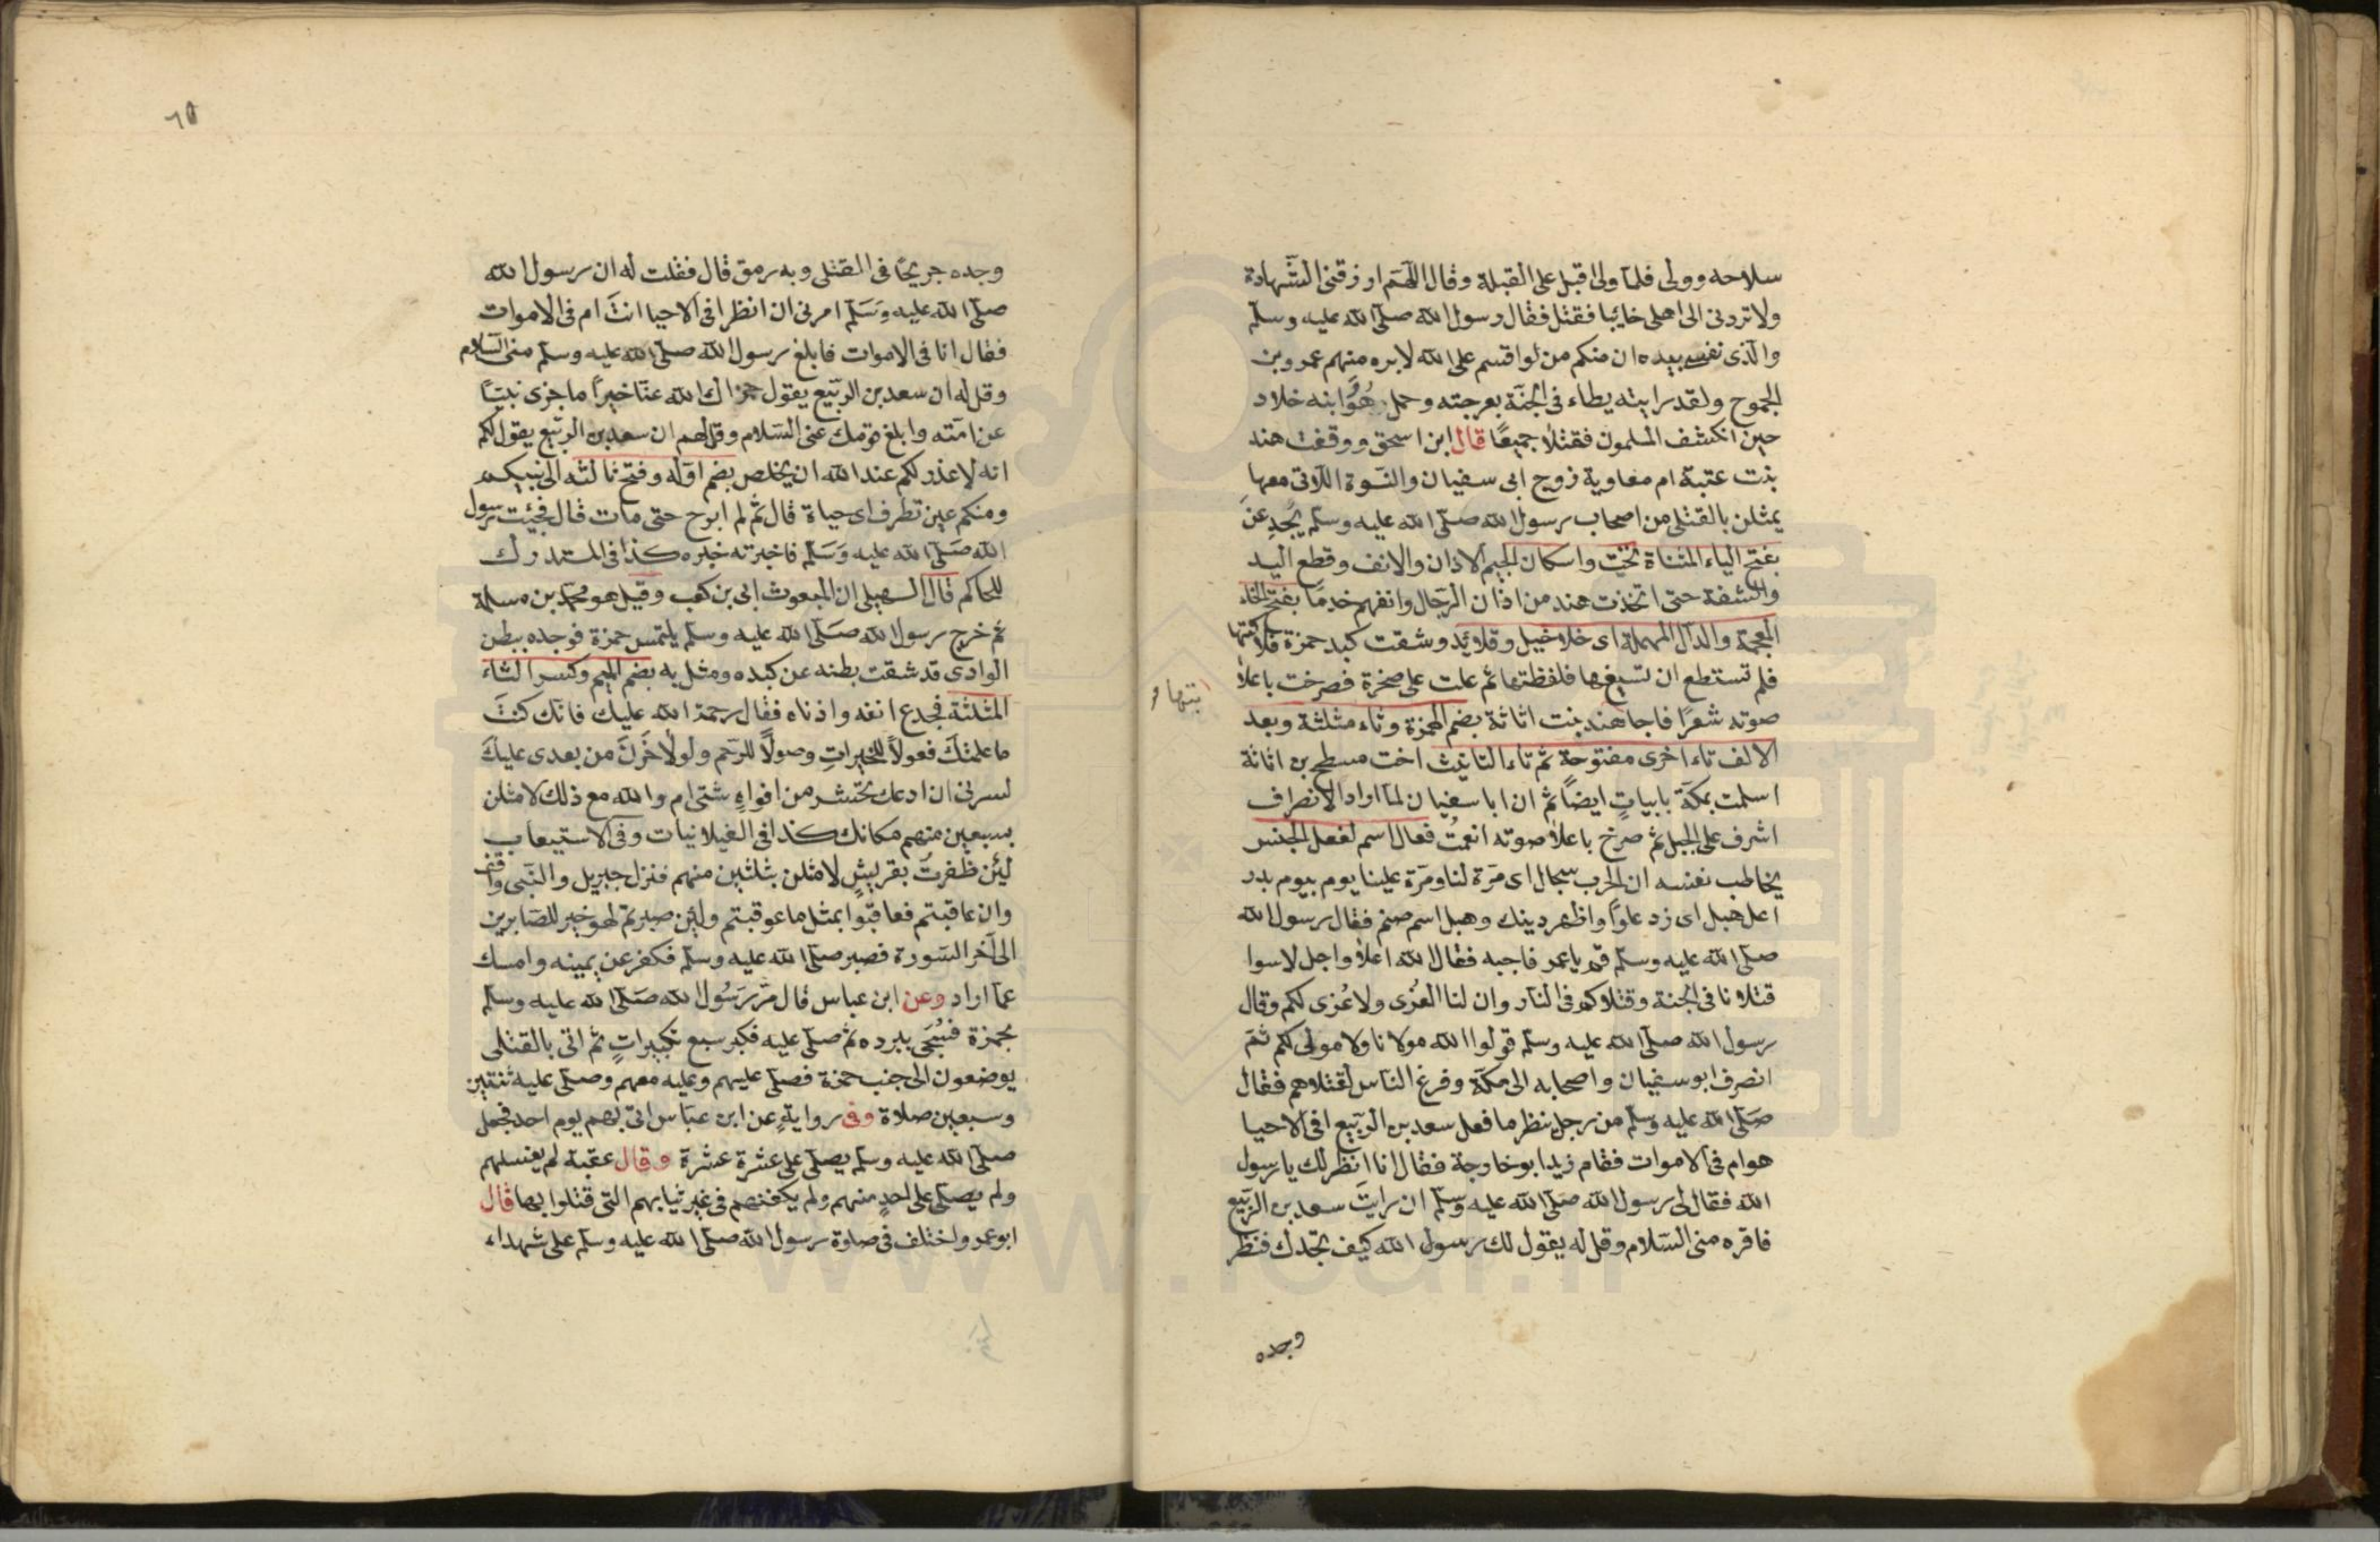 سلاحه وولى فلما ولى اقبل على القبلة وقال اللهم ارزقنى الشهادة
ولا تردنى الى اهلى خائبا فقتل فقال رسول الله صلى الله عليه وسلم
والذى نفسى بيده ان منكم من لو اقسم على الله لابره منهم عمرو بن
الجموح ولقد رايته يطاء فى الجنة بعرجته وحمل هو وابنه خلاد
حين انكشف المسلمون فقتلا جميعا قال ابن اسحق ووقفت هند
بنت عتبة ام معاوية زوج ابى سفيان والنسوة اللاتى معها
يمثلن بالقتلى من اصحاب رسول الله صلى الله عليه وسلم يجدعن
بفتح الياء المثناة تحت واسكان الجيم الاذان والانف وقطع اليد
والشفة حتى اتخذت هند من اذان الرجال وانفهم خدما بفتح الخاء
المعجمة والدال المهملة اى خلاخيل وقلائد وشقت كبد حمزة فلاكتها
فلم تستطع ان تسيغها فلفظتها ثم علت على صخرة فصرخت باعلا
صوته شعرا فاجا هند بنت اثاثة بضم الهمزة وثاء مثلثة وبعد
الالف ثاء اخرى مفتوحة ثم تاء التانيث اخت مسطح بن اثاثة
اسلمت بمكة بابيات ايضا ثم ان ابا سفيان لما اراد الانصراف
اشرف على الجبل ثم صرخ باعلا صوته انعمت فعال اسم لفعل الجنس
يخاطب نفسه ان الحرب سجال اى مرة لنا ومرة علينا يوم بيوم بدر
اعل هبل اى زد علوا واظهر دينك وهبل اسم صنم فقال رسول الله
صلى الله عليه وسلم قم يا عمر فاجبه فقال الله اعلا واجل لا سوا
قتلانا فى الجنة وقتلاكم فى النار وان لنا العزى ولا عزى لكم وقال
رسول الله صلى الله عليه وسلم قولوا الله مولانا ولا مولى لكم ثم
انصرف ابو سفيان واصحابه الى مكة وفرغ الناس لقتلاهم فقال
صلى الله عليه وسلم من رجل ينظر ما فعل سعد بن الربيع افى الاحيا
هو ام فى الاموات فقام زيد ابو خارجة فقال انا انظر لك يا رسول
الله فقال لى رسول الله صلى الله عليه وسلم ان رايت سعد بن الربيع
فاقره منى السلام وقل له يقول لك رسول الله كيف تجدك فنظر
وجده
٦٥
وجده جريحا فى القتلى وبه رمق قال فقلت له ان رسول الله
صلى الله عليه وسلم امرنى ان انظر افى الاحيا انت ام فى الاموات
فقال انا فى الاموات فابلغ رسول الله صلى الله عليه وسلم منى السلام
وقل له ان سعد بن الربيع يقول جزاك الله عنا خيرا ما جزى نبيا
عن امته وابلغ قومك عنى السلام وقل لهم ان سعد بن الربيع يقول لكم
انه لا عذر لكم عند الله ان يخلص بضم اوله وفتح ثالثه الى نبيكم
ومنكم عين تطرف اى حياة قال ثم لم ابرح حتى مات قال فجيت رسول
الله صلى الله عليه وسلم فاخبرته خبره كذا فى المستدرك
للحاكم قال السهيلى ان المبعوث ابى بن كعب وقيل هو محمد بن مسلمة
ثم خرج رسول الله صلى الله عليه وسلم يلتمس حمزة فوجده ببطن
الوادى قد شقت بطنه عن كبده ومثل به بضم الميم وكسر الثاء
المثلثة فجدع انفه واذناه فقال رحمة الله عليك فانك كنت
ما علمتك فعولا للخيرات وصولا للرحم ولولا حزن من بعدى عليك
لسرنى ان ادعك تحشر من افواه شتى ام والله مع ذلك لامثلن
بسبعين منهم مكانك كذا فى الغيلانيات وفى الاستيعاب
لئن ظفرت بقريش لامثلن بثلثين منهم فنزل جبريل والنبى واقف
وان عاقبتم فعاقبوا بمثل ما عوقبتم ولئن صبرتم لهو خير للصابرين
الى آخر السورة فصبر صلى الله عليه وسلم فكفر عن يمينه وامسك
عما اراد وعن ابن عباس قال مر رسول الله صلى الله عليه وسلم
بحمزة فسجى ببرده ثم صلى عليه فكبر سبع تكبيرات ثم اتى بالقتلى
يوضعون الى جنب حمزة فصلى عليهم وعليه معهم وصلى عليه ثنتين
وسبعين صلاة وفى رواية عن ابن عباس اتى بهم يوم احد فجعل
صلى الله عليه وسلم يصلى على عشرة عشرة وقال عقبة لم يغسلهم
ولم يصلى على احد منهم ولم يكفنهم فى غير ثيابهم التى قتلوا بها قال
ابو عمر واختلف فى صلوة رسول الله صلى الله عليه وسلم على شهداء